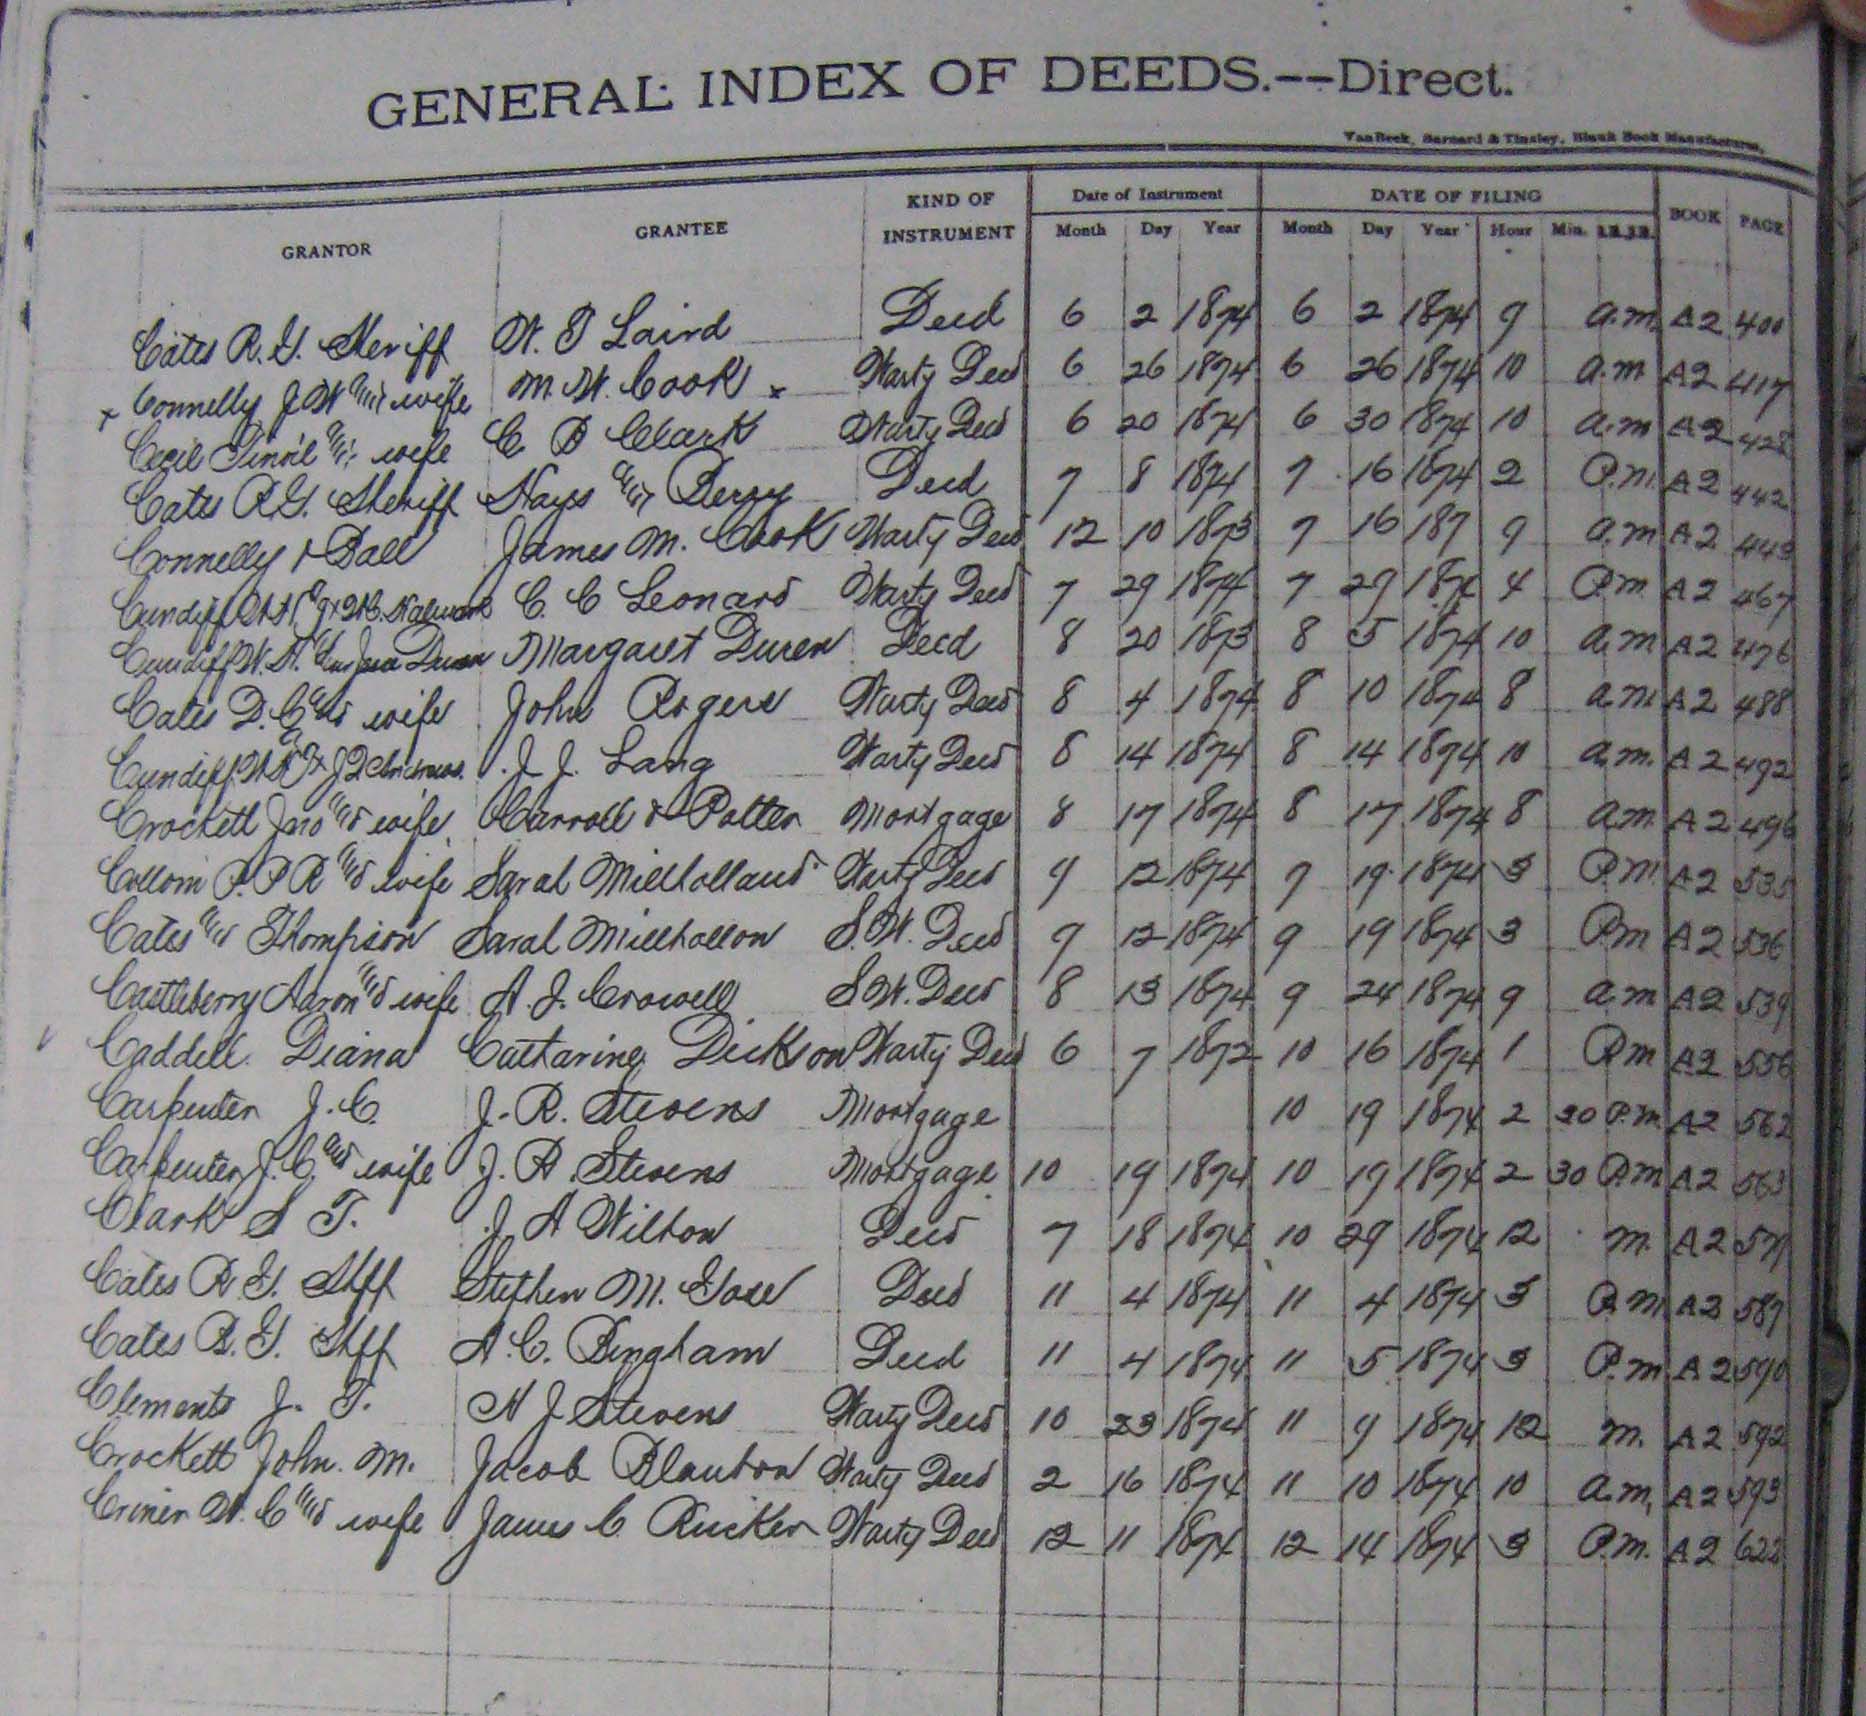 GENERAL INDEX OF DEEDS.--Direct.
VanBeek, Barnard & Tinsley, Blank Book Manufacturers,
GRANTOR GRANTEE KIND OF INSTRUMENT Date of Instrument DATE OF FILING BOOK PAGE
Month Day Year Month Day Year Hour Min.
Cates R. G. Sheriff W. T Laird Deed 6 2 1874 6 2 1874 9 a.m. A2 400
x Connelly J W and wife M. W. Cook x Warty Deed 6 26 1874 6 26 1874 10 a.m A2 417
Cecil and wife C B Clark Warty Deed 6 20 1874 6 30 1874 10 a.m A2 428
Cates R.G. Sheriff Hays and Berry Deed 7 8 1874 7 16 1874 2 P.m. A2 442
Connelly & Ball James M. Cook Warty Deed 12 10 1873 7 16 187 9 a.m A2 443
Cundiff C. C Leonard Warty Deed 7 29 1874 7 29 187 4 P.m A2 467
Cundiff W. H. Margaret Duren Deed 8 20 1873 8 5 1874 10 a.m A2 476
Cates D. C and wife John Rogers Warty Deed 8 4 1874 8 10 1874 8 a.m. A2 488
Cundiff J. J. Lang Warty Deed 8 14 1874 8 14 1874 10 a.m. A2 492
Crockett Jno and wife Carroll & Potter Mortgage 8 17 1874 8 17 1874 8 a.m. A2 496
Collom P. P R and wife Sarah Millholland Warty Deed 9 12 1874 9 19 1874 3 P.m. A2 535
Cates and Thompson Sarah Millhollon S. W. Deed 9 12 1874 9 19 1874 3 P.m A2 536
Castleberry Aaron and wife A. J. Crowell S W. Deed 8 13 1874 9 24 1874 9 a.m A2 539
Caddell Diana Catharine Dickson Warty Deed 6 7 1872 10 16 1874 1 P.m A2 556
Carpenter J. C. J. R. Stevens Mortgage 10 19 1874 2 30 P.m. A2 562
Carpenter J. C. and wife J. R. Stevens Mortgage 10 19 1874 10 19 1874 2 30 P.m A2 563
Clark S T. J A Wilton Deed 7 18 1874 10 29 1874 12 m. A2
Cates R. G. Shff Stephen M. Deed 11 4 1874 11 4 1874 3 P.m. A2 587
Cates R. G. Shff A. C. Bingham Deed 11 4 1874 11 5 1874 3 P.m A2 590
Clements J. T. H J Stevens Warty Deed 10 23 1874 11 9 1874 12 m. A2 592
Crockett John. M. Jacob Blanton Warty Deed 2 16 1874 11 10 1874 10 a.m, A2 593
Criner W. C and wife James C. Rucker Warty Deed 12 11 1874 12 14 1874 3 P.m. A2 622